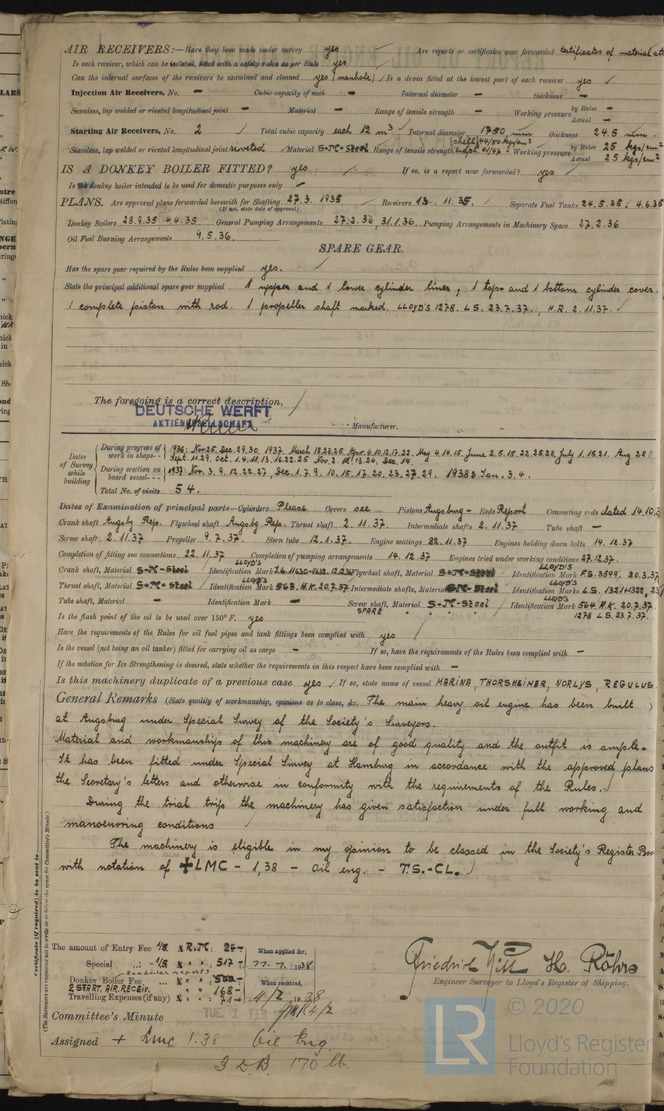 AIR RECEIVERS:—Have they been made under survey yes Are reports or certificates now forwarded certificates of material att
Is each receiver, which can be isolated, fitted with a safety valve as per Rule yes
Can the internal surfaces of the receivers be examined and cleaned yes (manhole) Is a drain fitted at the lowest part of each receiver yes
Injection Air Receivers, No. - Cubic capacity of each - Internal diameter - thickness -
Seamless, lap welded or riveted longitudinal joint - Material - Range of tensile strength - Working pressure by Rules - Actual -
Starting Air Receivers, No. 2 Total cubic capacity each 12 m3 Internal diameter 1750 mm thickness 24.5 mm.
Seamless, lap welded or riveted longitudinal joint riveted Material S-M-Steel Range of tensile strength Working pressure by Rules 25 kgs/cm2 Actual 25 kgs/cm2
IS A DONKEY BOILER FITTED? yes If so, is a report now forwarded? yes
Is the donkey boiler intended to be used for domestic purposes only -
PLANS. Are approved plans forwarded herewith for Shafting 27.3.1935 Receivers 13. 11.35. Separate Fuel Tanks 24.5.35. 4.6.35
(If not, state date of approval)
Donkey Boilers 28.9.35 4.4.35 General Pumping Arrangements 27.2.36, 31.1.36. Pumping Arrangements in Machinery Space 27.2.36
Oil Fuel Burning Arrangements 9.5.36.
SPARE GEAR.
Has the spare gear required by the Rules been supplied yes.
State the principal additional spare gear supplied 1 upper and 1 lower cylinder liner, 1 top- and 1 bottom cylinder cover.
1 complete piston with rod. 1 propeller shaft marked. LLOYD'S 1278. L.S. 23.7.37., H.R. 2.11.37.
The foregoing is a correct description.
DEUTSCHE WERFT
AKTIENGESELLSCHAFT Manufacturer.
Dates of Survey while building
During progress of work in shops-- 1936: Nov 25. Dec. 29.30. 1937. March 18.23.25. Apr. 6.10.12.17.22. May 4.14.15. June 2.5.15.22.25.28. July 1.15.21. Aug 28.
Sept. 11.29. Oct. 1.4.11.13.16.22.25 Nov. 2. 13.24. Dec. 14.
During erection on board vessel--- 1937: Nov. 3. 9. 12. 22. 27, Dec. 1. 7. 9. 10. 15. 17. 20. 23. 27. 29. 1938: Jan. 3. 4.
Total No. of visits 54.
Dates of Examination of principal parts—Cylinders Please Covers see Pistons Augsburg Rods Report Connecting rods dated 14.10.3
Crank shaft Augsbg Rep. Flywheel shaft Augsbg Rep. Thrust shaft 2.11.37. Intermediate shafts 2.11.37 Tube shaft -
Screw shaft 2.11.37 Propeller 9.7.37 Stern tube 12.1.37. Engine seatings 22.11.37 Engines holding down bolts 14.12.37
Completion of fitting sea connections 22.11.37 Completion of pumping arrangements 14.12.37 Engines tried under working conditions 27.12.37.
Crank shaft, Material S-M-Steel Identification Mark LLOYD'S Flywheel shaft, Material S-M-Steel Identification Mark LLOYD'S F.S. 3599. 20.3.37
Thrust shaft, Material S-M-Steel Identification Mark LLOYD'S 563.H.K.20.7.37 Intermediate shafts, Material S-M-Steel Identification Marks LLOYD'S L.S. 1321+1322
Tube shaft, Material - Identification Mark - Screw shaft, Material S-M-Steel Identification Mark LLOYD'S 564.H.K. 20.7.37.
Is the flash point of the oil to be used over 150° F. yes SPARE " " " 1278 L.S. 23.7.37.
Have the requirements of the Rules for oil fuel pipes and tank fittings been complied with yes
Is the vessel (not being an oil tanker) fitted for carrying oil as cargo - If so, have the requirements of the Rules been complied with -
If the notation for Ice Strengthening is desired, state whether the requirements in this respect have been complied with -
Is this machinery duplicate of a previous case yes If so, state name of vessel MARINA, THORSHEIMER, NORLYS, REGULUS.
General Remarks (State quality of workmanship, opinions as to class, &c. The main heavy oil engine has been built
at Augsburg under Special Survey of the Society's Surveyors.
Material and workmanships of this machinery are of good quality and the outfit is ample.
It has been fitted under Special Survey at Hamburg in accordance with the approved plans
the Secretary's letters and otherwise in conformity with the requirements of the Rules.
During the trial trips the machinery has given satisfaction under full working and
manoeuvring conditions
The machinery is eligible in my opinion to be classed in the Society's Register Boo
with notation of +LMC - 1,38 - Oil eng. - T.S.-CL.
Certificate (if required) to be sent to
(The Surveyors are requested not to write on or below the space for Committee's Minute.)
The amount of Entry Fee 1/5 R.M: 24-
Special ... 1/5 517-
Donkey Boiler Fee
2 START. AIR. RECEIV. 168-
Travelling Expenses (if any) 71-
When applied for,
11.1.1938
When received,
4/2 1938
Friedrich Will H. Röhrs
Engineer Surveyor to Lloyd's Register of Shipping.
Committee's Minute TUE. 1 FEB
Assigned + Lmc 1.38 Oil Eng
2 D.B. 170 lb.
© 2020
LR
Lloyd's Register
Foundation